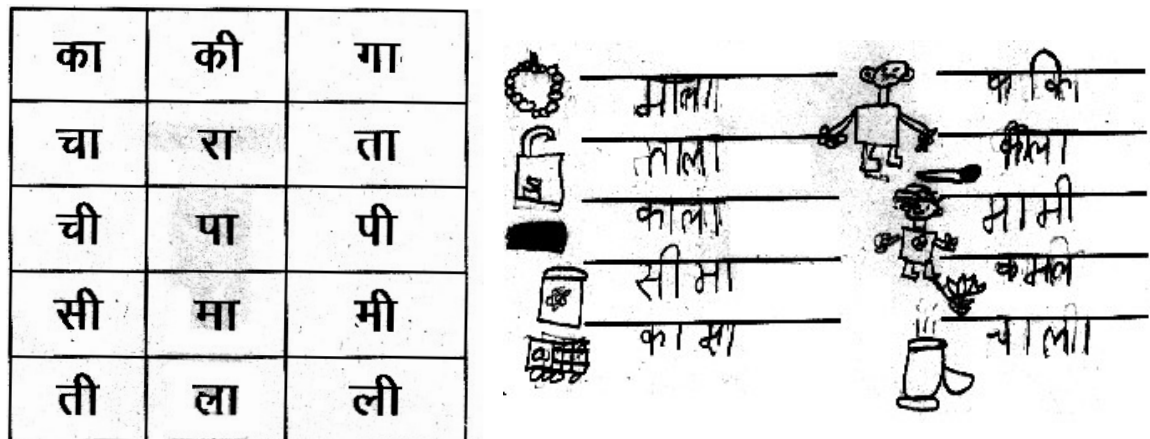 का की गा
चा रा ता
ची पा पी
सी मा मी
ती ला ली
माला
ताला
काला
सीमा
कामा
काकि
कीला
मामी
कमल
चाली